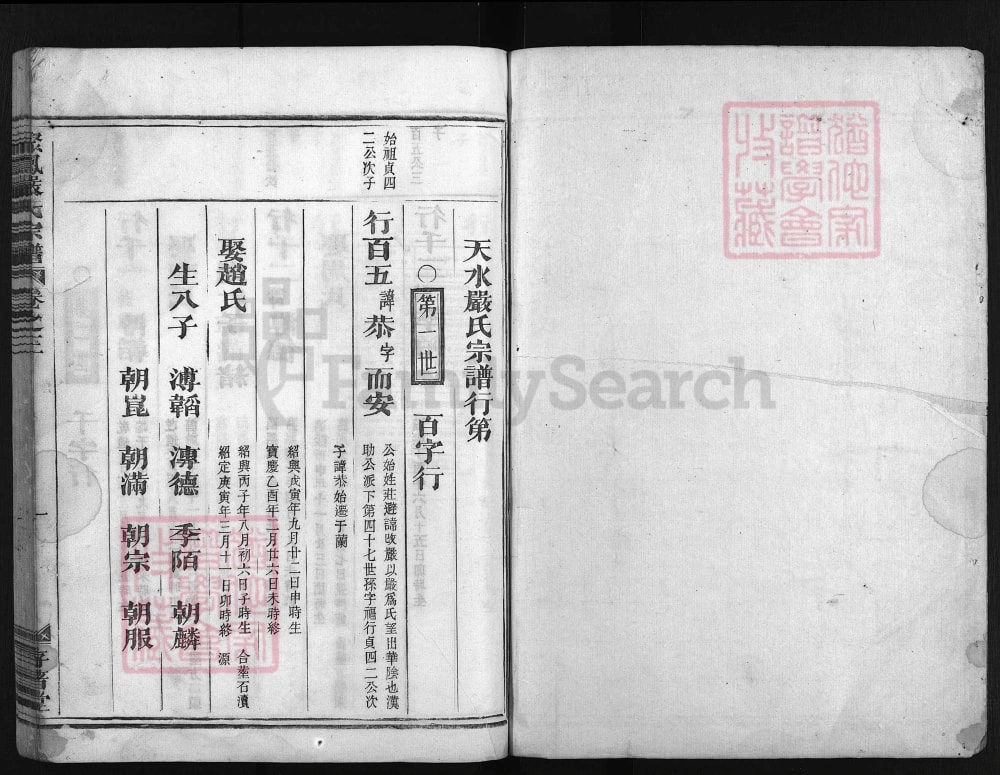 天水嚴氏宗譜行第
第一世 百字行
始祖貞四
二公次子
行百五諱恭字而安
公始姓莊避諱改嚴以嚴為氏望出華陰也漢
助公派下第四十七世孫字福行貞四二公次
子諱恭始遷于蘭
紹興戊寅年九月廿二日申時生
寶慶乙酉年二月廿六日未時終
娶趙氏
紹興丙子年八月初六日子時生 合塟石瀆
紹定庚寅年三月十一日卯時終 源
生八子 溥韜 漙德 季陌 朝麟
朝崑 朝滿 朝宗 朝服
嚴氏宗譜 卷之三
一
FamilySearch
譜學會
收藏